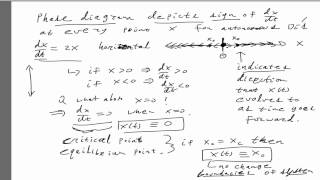 Phase diagram depicts sign of dx/dt
at every point x for autonomous DEs
dx/dt = 2x horizontal x₀ x₀ x
0
indicates
direction
that x(t)
evolves to
as time goes
forward.
→ if x>0 → dx/dt >0
if x<0 → dx/dt <0
Q what about x=0 ?
→ dx/dt = 0 when x=0.
x(t) ≡ 0
critical point
equilibrium point.
if x₀ = x_c then
x(t) ≡ x₀
no change
of system